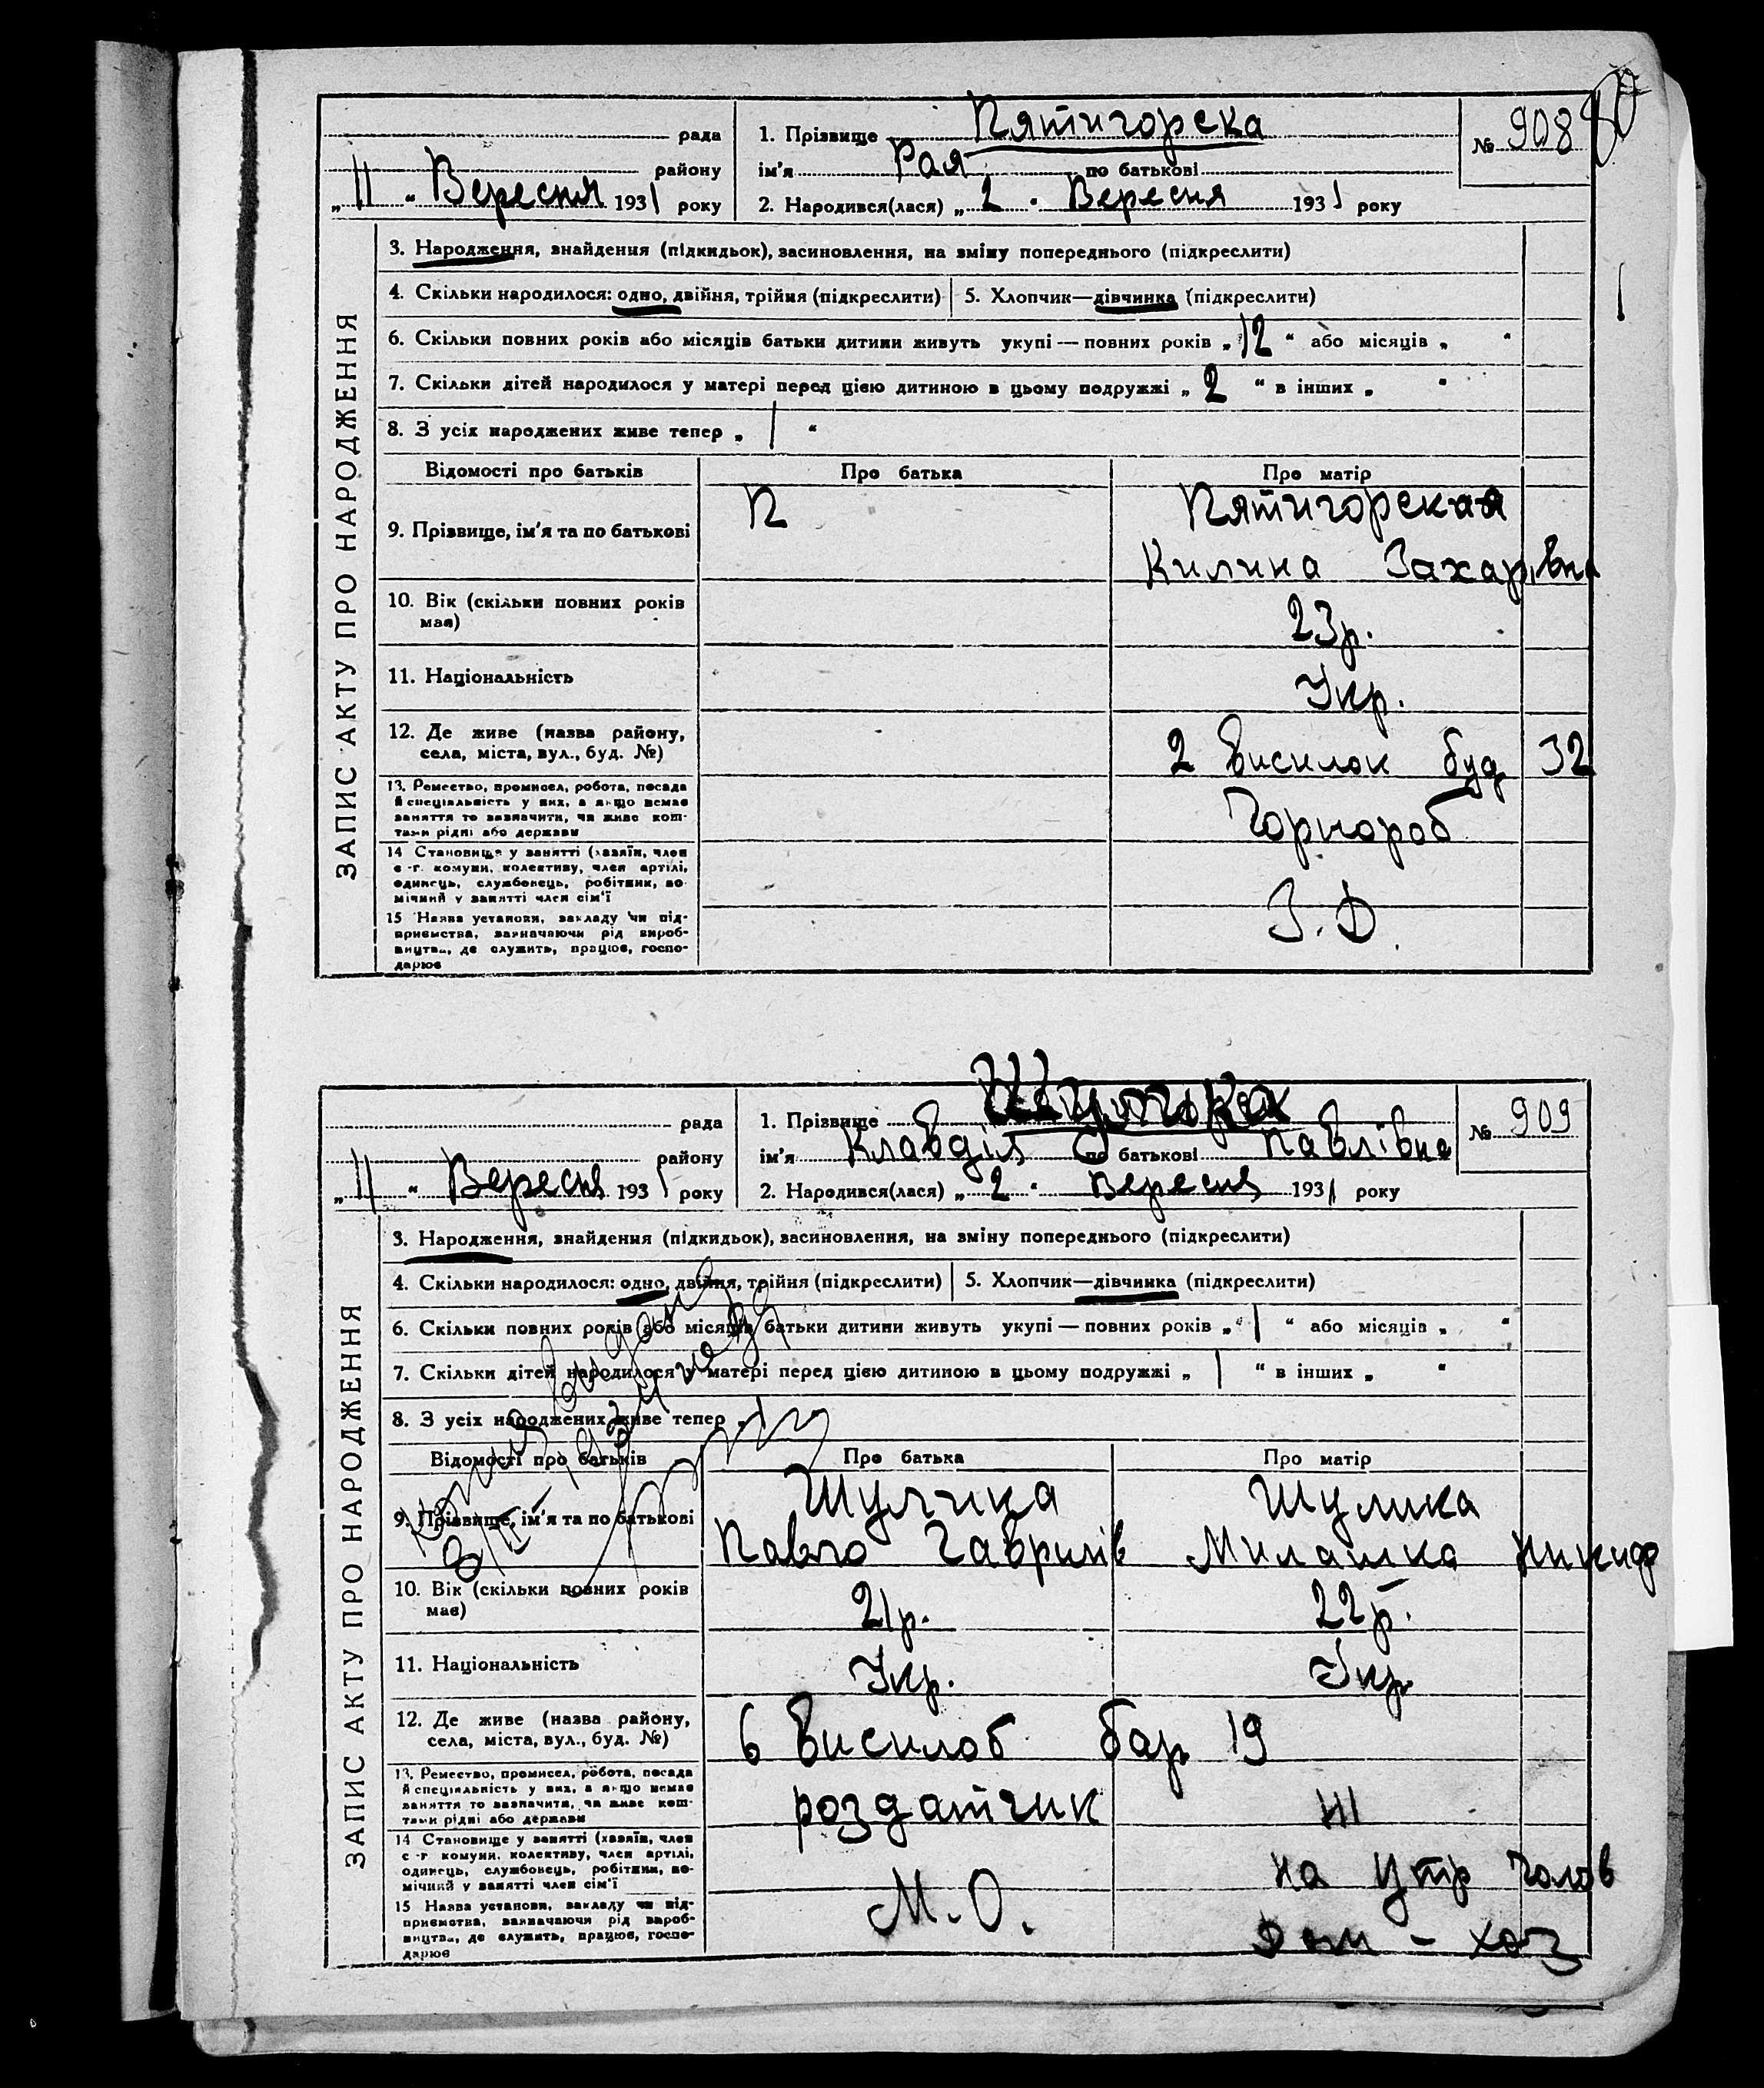 80
рада
1. Прізвище Пятигорска
№ 908
району
ім'я Рая по батькові
„ 11 “ Вересня 1931 року
2. Народився(лася) „ 2 “ Вересня 1931 року
ЗАПИС АКТУ ПРО НАРОДЖЕННЯ
3. Народження, знайдення (підкидьок), засиновлення, на зміну попереднього (підкреслити)
4. Скільки народилося: одно, двійня, трійня (підкреслити) 5. Хлопчик—дівчинка (підкреслити)
6. Скільки повних років або місяців батьки дитини живуть укупі — повних років „ 12 “ або місяців „ “
7. Скільки дітей народилося у матері перед цією дитиною в цьому подружжі „ 2 “ в інших „ “
8. З усіх народжених живе тепер „ 1 “
Відомості про батьків Про батька Про матір
9. Прізвище, ім'я та по батькові П Пятигорская
Килина Захарівна
10. Вік (скільки повних років
має) 23р.
11. Національність Укр.
12. Де живе (назва району,
села, міста, вул., буд. №) 2 висилок буд 32
13. Ремество, промисел, робота, посада
й спеціяльність у них, а якщо немає
заняття то зазначити, чи живе кош-
тами рідні або держави Чорнороб
14 Становище у занятті (хазяїн, член
с.-г. комуни, колективу, член артілі,
одинець, службовець, робітник, по-
мічний у занятті член сім'ї
15 Назва установи, закладу чи під-
приємства, зазначаючи рід вироб-
ництва, де служить, працює, госпо-
дарює З.Д.
рада
1. Прізвище Шулика
№ 909
району
ім'я Клавдія по батькові Павлівна
„ 11 “ Вересня 1931 року
2. Народився(лася) „ 2 “ Вересня 1931 року
ЗАПИС АКТУ ПРО НАРОДЖЕННЯ
3. Народження, знайдення (підкидьок), засиновлення, на зміну попереднього (підкреслити)
4. Скільки народилося: одно, двійня, трійня (підкреслити) 5. Хлопчик—дівчинка (підкреслити)
6. Скільки повних років або місяців батьки дитини живуть укупі — повних років „ 1 “ або місяців „ “
7. Скільки дітей народилося у матері перед цією дитиною в цьому подружжі „ 1 “ в інших „ “
8. З усіх народжених живе тепер „
Відомості про батьків Про батька Про матір
9. Прізвище, ім'я та по батькові Шулика Шулика
Павло Гаврилів Милашка Никиф
10. Вік (скільки повних років
має) 21р. 22р.
11. Національність Укр. Укр.
12. Де живе (назва району,
села, міста, вул., буд. №) 6 висилоб бар 19
13. Ремество, промисел, робота, посада
й спеціяльність у них, а якщо немає
заняття то зазначити, чи живе кош-
тами рідні або держави роздатчик
14 Становище у занятті (хазяїн, член
с.-г. комуни, колективу, член артілі,
одинець, службовець, робітник, по-
мічний у занятті член сім'ї на утр чолов
15 Назва установи, закладу чи під-
приємства, зазначаючи рід вироб-
ництва, де служить, працює, госпо-
дарює М.О. Дом - хаз
видана